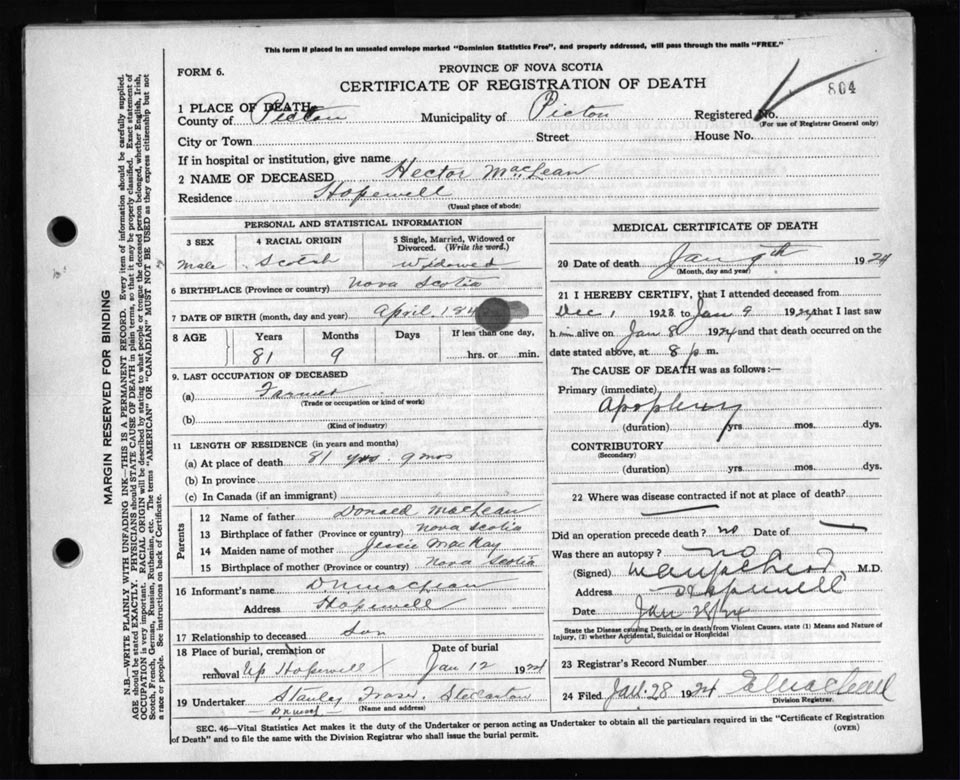 This form if placed in an unsealed envelope marked "Dominion Statistics Free", and properly addressed, will pass through the mails "FREE."
FORM 6.
PROVINCE OF NOVA SCOTIA
CERTIFICATE OF REGISTRATION OF DEATH
804
1 PLACE OF DEATH
County of Pictou Municipality of Pictou Registered No.
(For use of Registrar General only)
City or Town Street House No.
If in hospital or institution, give name
2 NAME OF DECEASED Hector MacLean
Residence Hopewell
(Usual place of abode)
PERSONAL AND STATISTICAL INFORMATION
3 SEX 4 RACIAL ORIGIN 5 Single, Married, Widowed or Divorced. (Write the word.)
Male Scotch Widowed
6 BIRTHPLACE (Province or country) Nova Scotia
7 DATE OF BIRTH (month, day and year) April 184
8 AGE Years Months Days If less than one day,
81 9 hrs. or min.
9. LAST OCCUPATION OF DECEASED
(a) Farmer
(Trade or occupation or kind of work)
(b)
(Kind of industry)
11 LENGTH OF RESIDENCE (in years and months)
(a) At place of death 81 yrs. 9 mos
(b) In province
(c) In Canada (if an immigrant)
Parents
12 Name of father Donald MacLean
13 Birthplace of father (Province or country) Nova Scotia
14 Maiden name of mother Jessie MacKay
15 Birthplace of mother (Province or country) Nova Scotia
16 Informant's name D N MacLean
Address Hopewell
17 Relationship to deceased Son
18 Place of burial, cremation or removal Date of burial
Up Hopewell Jan 12 1924
19 Undertaker Stanley Fraser. Stellarton
(Name and address)
MEDICAL CERTIFICATE OF DEATH
20 Date of death Jan 9th 1924
(Month, day and year)
21 I HEREBY CERTIFY, that I attended deceased from
Dec 1 1923 to Jan 9 1924 that I last saw
him alive on Jan 8 1924 and that death occurred on
date stated above, at 8 p m.
The CAUSE OF DEATH was as follows:—
Primary (immediate)
Apoplexy
(duration) yrs. mos. dys.
CONTRIBUTORY
(Secondary)
(duration) yrs. mos. dys.
22 Where was disease contracted if not at place of death?
Did an operation precede death? no Date of
Was there an autopsy? no
(Signed) M.D.
Address Hopewell
Date Jan 28/24
State the Disease causing Death, or in death from Violent Causes, state (1) Means and Nature of
Injury, (2) whether Accidental, Suicidal or Homicidal
23 Registrar's Record Number
24 Filed Jan. 28 1924
Division Registrar.
SEC. 46—Vital Statistics Act makes it the duty of the Undertaker or person acting as Undertaker to obtain all the particulars required in the "Certificate of Registration
of Death" and to file the same with the Division Registrar who shall issue the burial permit.
(OVER)
MARGIN RESERVED FOR BINDING
N.B.—WRITE PLAINLY WITH UNFADING INK—THIS IS A PERMANENT RECORD. Every item of information should be carefully supplied.
AGE should be stated EXACTLY. PHYSICIANS should STATE CAUSE OF DEATH in plain terms, so that it may be properly classified. Exact statement of
OCCUPATION is very important. RACIAL ORIGIN will be described by stating to what people or tongue the deceased person belonged, whether English, Irish,
Scotch, French, German, Russian, Ruthenian, etc. The terms "AMERICAN" or "CANADIAN" MUST NOT BE USED as they express citizenship but not
a race or people. See instructions on back of Certificate.